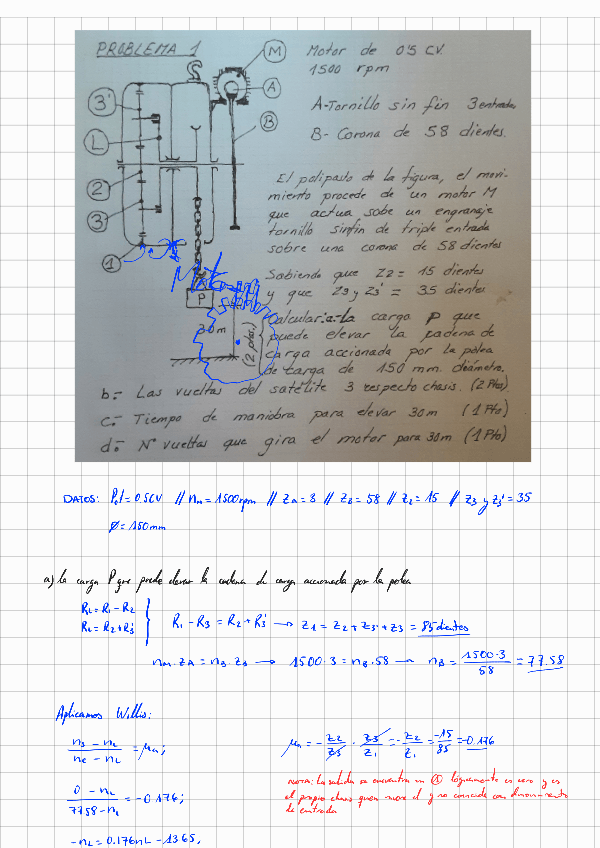 PROBLEMA 1
Motor de 0'5 C.V.
1500 rpm
A-Tornillo sin fin 3 entradas
B- Corona de 58 dientes.
M
A
B
3'
L
2
3
1
P
30m
El polipasto de la figura, el movi-
miento procede de un motor M
que actua sobe un engranaje
tornillo sinfin de triple entrada
sobre una corona de 58 dientes
Sabiendo que Z2 = 15 dientes
y que Z3 y Z3' = 35 dientes
Calcular: a-La carga P que
puede elevar la cadena de
carga accionada por la polea
de carga de 150 mm. diámetro.
(2 ptos)
b.- Las vueltas del satélite 3 respecto chasis. (2 Ptos)
c.- Tiempo de maniobra para elevar 30m (1 Pto)
d.- Nº vueltas que gira el motor para 30m (1 Pto)
DATOS: Pot = 0.5CV // nm = 1500rpm // ZA = 3 // ZB = 58 // Z2 = 15 // Z3 y Z3' = 35
Ø = 150mm
a) La carga P que puede elevar la cadena de carga accionada por la polea
RL = R1 - R2
RL = R2 + R3'
R1 - R3 = R2 + R3' → Z1 = Z2 + Z3' + Z3 = 85 dientes
nm · ZA = nB · ZB → 1500 · 3 = nB · 58 → nB = 1500·3 / 58 = 77.58
Aplicamos Willis:
ns - nL / ne - nL = μa;
μa = - Z2/Z3 · Z3/Z1 = - Z2/Z1 = -15/85 = -0.176
0 - nL / 77.58 - nL = -0.176;
NOTA: La salida se encuentra en ① lógicamente es cero y es
el propio chasis quien mueve el y no coincide con el movimiento
de entrada
-nL = 0.176nL - 13.65,